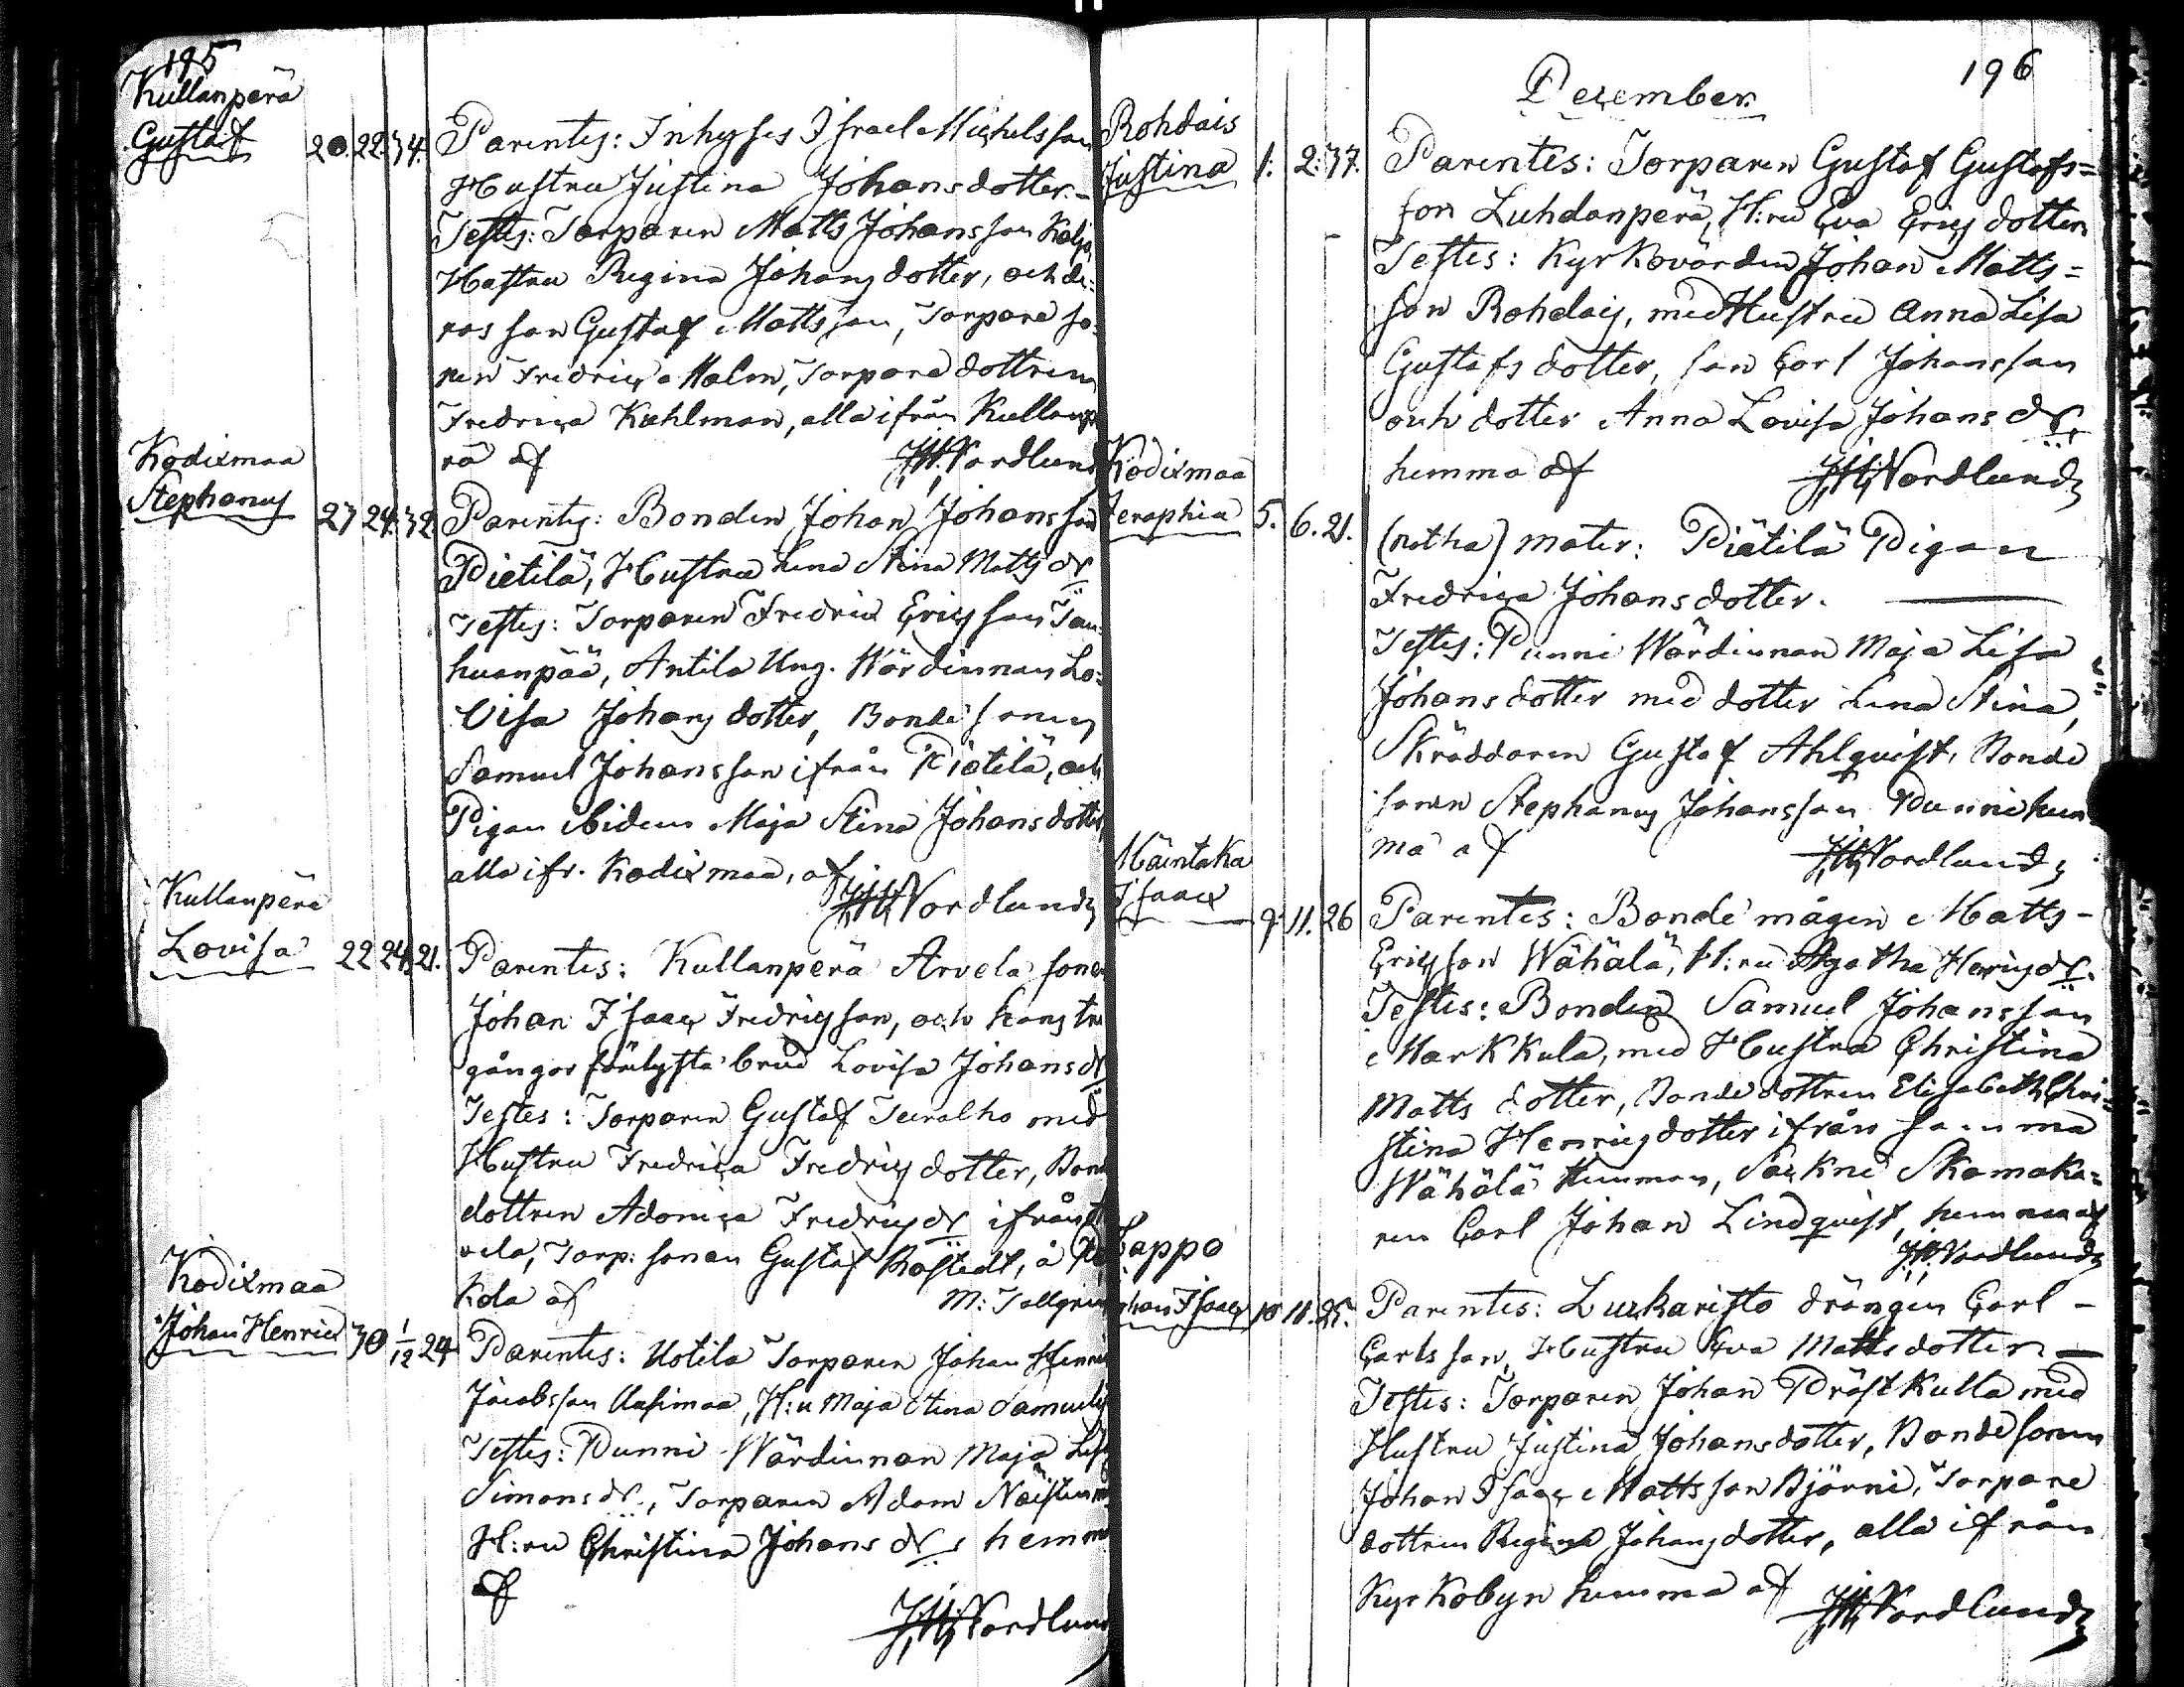 195
Kullanperä
Gustaf 20. 22. 34.
Parentes: Inhyses Israel Michelsson
Hustru Justina Johansdotter.-
Testes: Torparen Matts Johansson
Hustru Regina Johansdotter, och de-
ras son Gustaf Mattsson, Torpare so-
nen Fredrica Malm, Torpare dottren
Fredrica Kahlman, alla ifrån Kullanpe
rä af Nordlund
Kodixmaa
Stephanus 27 24. 32.
Parentes: Bonden Johan Johansson
Pietilä, Hustru Lena Stina Matts dr
Testes: Torparen Fredric Ericsson Tan-
huanpää, Antila Ung. Wärdinnan Lo-
visa Johans dotter, Bonde sonen
Samuel Johansson ifrån Piätilä, och
Pigan ibidem Maja Stina Johansdotter
alla ifr. Kodixmaa, af
Nordlund
Kullanperä
Lovisa 22 24. 21.
Parentes: Kullanperä Arvela sonen
Johan Isaac Fredricsson, och hans tre
gångor förlysta brud Lovisa Johans dr
Testes: Torparen Gustaf Teuralho med
Hustru Fredrica Fredrics dotter, Bonde
dottren Adonica Fredrics dr ifrån Ar
vela, Torp: sonen Gustaf Rostedt, å
kola af M: Tallgren
Kodixmaa
Johan Henric 30 1/12 24
Parentes: Uotila Torparen Johan Henric
Jacobsson Uusimaa, H:u Maja Stina Samuels
Testes: Punni Wärdinnan Maja Lisa
Simons dr, Torparen Adam
H:ru Christina Johans dr, hemma
af
Nordlund
196
December
Rohdais
Justina 1. 2. 37.
Parentes: Torparen Gustaf Gustafs=
son Luhdanperä, H:ru Eva Erics dotter
Testes: Kyrkovärden Johan Matts=
son Rohdais, med Hustru Anna Lisa
Gustafs dotter, son Carl Johansson
och dotter Anna Lovisa Johans dr,
hemma af Nordlund
Kodixmaa
Seraphia 5. 6. 21.
(notha) mater: Piätilä Pigan
Fredrica Johansdotter.
Testes: Punni Wärdinnan Maja Lisa
Johansdotter med dotter Lena Stina,
Skräddaren Gustaf Ahlquist, Bonde
sonen Stephanus Johansson Punni hem
ma af Nordlund
Mäntaka
Isaac 9. 11. 26
Parentes: Bonde mågen Matts-
Ericsson Wähälä, H:ru Agatha Henrics dr.
Testes: Bonden Samuel Johansson
Markkula, med Hustru Christina
Matts dotter, Bonde dottren Elisabeth Chri=
stina Henrics dotter ifrån samma
Wähälä Hemman, Sockne Skomaka=
ren Carl Johan Lindquist, hemma af
Nordlund
Lappo
Johan Isaac 10 11. 25.
Parentes: Luxkaristo drängen Carl -
Carlsson, Hustru Eva Mattsdotter
Testes: Torparen Johan Prästkulla med
Hustru Justina Johansdotter, Bondesonen
Johan Isaac Mattsson Björni, Torpare
dottren Regina Johansdotter, alla ifrån
Kyrkobyn hemma af Nordlund